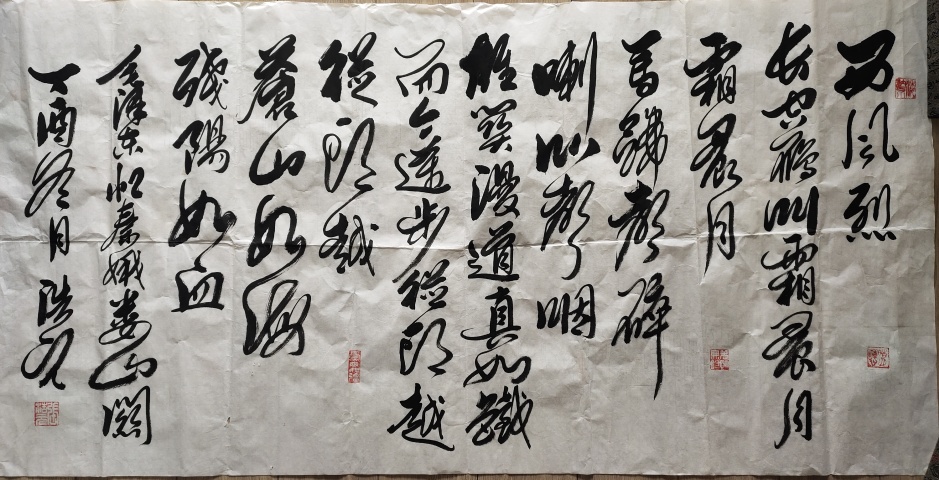 西风烈
长空雁叫霜晨月
霜晨月
马蹄声碎
喇叭声咽
雄关漫道真如鐵
而今迈步從头越
從头越
蒼山如海
残陽如血
毛泽东忆秦娥娄山關
丁酉冬月浩